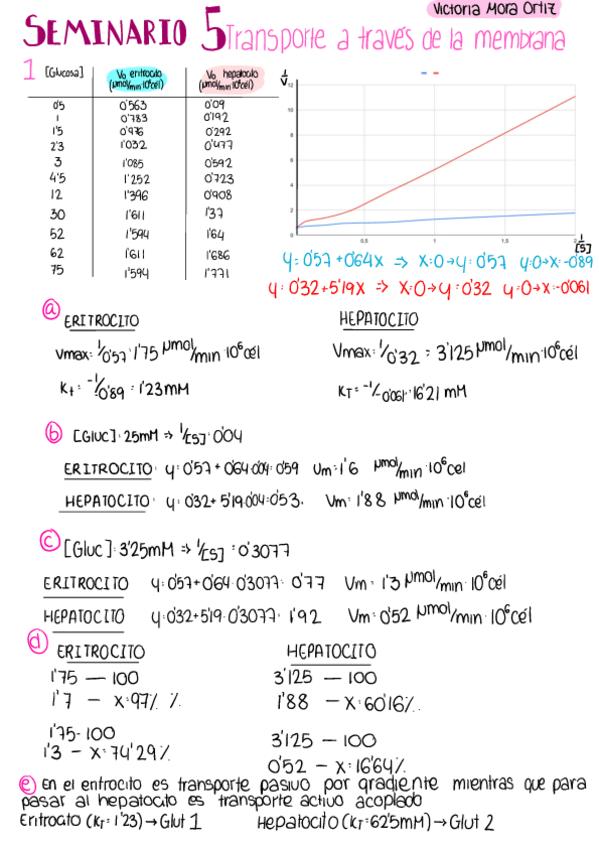 Victoria Mora Ortiz
SEMINARIO 5 Transporte a través de la membrana
1 [Glucosa] Vo eritrocito (μmol/min 10⁶cél) Vo hepatocito (μmol/min 10⁶cél)
0'5 0'563 0'09
1 0'783 0'192
1'5 0'976 0'292
2'3 1'032 0'477
3 1'085 0'592
4'5 1'252 0'723
12 1'396 0'908
30 1'611 1'37
52 1'594 1'64
62 1'611 1'686
75 1'594 1'771
1/V
12
10
8
6
4
2
0
0,5 1 1,5 2
1/[S]
y= 0'57+0'64x => x=0→y=0'57 y=0→x=-0'89
y= 0'32+5'19x => x=0→y=0'32 y=0→x=-0'061
a ERITROCITO HEPATOCITO
Vmax= 1/0'57 = 1'75 μmol/min·10⁶cél Vmax= 1/0'32 = 3'125 μmol/min·10⁶cél
Kt= -1/-0'89 = 1'23mM KT= -1/-0'061= 16'21 mM
b [Gluc]= 25mM => 1/[S]= 0'04
ERITROCITO= y= 0'57+0'64·0'04= 0'59 Vm= 1'6 μmol/min·10⁶cel
HEPATOCITO= y= 0'32+5'19·0'04=0'53. Vm= 1'88 μmol/min·10⁶cél
c [Gluc]= 3'25mM => 1/[S] = 0'3077
ERITROCITO y=0'57+0'64·0'3077= 0'77 Vm= 1'3 μmol/min·10⁶cél
HEPATOCITO y=0'32+5'19·0'3077= 1'92 Vm=0'52 μmol/min·10⁶cél
d ERITROCITO HEPATOCITO
1'75 — 100 3'125 — 100
1'7 — x=97% %. 1'88 — x=60'16%.
1'75- 100 3'125 — 100
1'3 - x=74'29%. 0'52 — x=16'64%.
e En el eritrocito es transporte pasivo por gradiente mientras que para
pasar al hepatocito es transporte activo acoplado
Eritrocito (KT=1'23)→Glut 1 Hepatocito (KT=62'5mM)→Glut 2